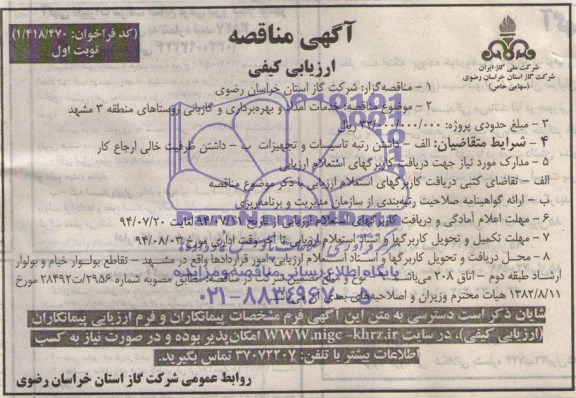 آگهی مناقصه
ارزیابی کیفی
(کد فراخوان: ۱/۴۱۸/۴۷۰)
نوبت اول
شرکت ملی گاز ایران
شرکت گاز استان خراسان رضوی
(سهامی خاص)
۱ – مناقصه‌گزار: شرکت گاز استان خراسان رضوی
۲ – موضوع مناقصه: خدمات امداد و بهره‌برداری و گازبانی روستاهای منطقه ۳ مشهد
۳ – مبلغ حدودی پروژه: ۰۰۰/۰۰۰/ ریال
۴ – شرایط متقاضیان: الف – داشتن رتبه تاسیسات و تجهیزات ب – داشتن ظرفیت خالی ارجاع کار
۵ – مدارک مورد نیاز جهت دریافت کاربرگهای استعلام ارزیابی
الف – تقاضای کتبی دریافت کاربرگهای استعلام ارزیابی با ذکر موضوع مناقصه
ب – ارائه گواهینامه صلاحیت رتبه‌بندی از سازمان مدیریت و برنامه‌ریزی
۶ – مهلت اعلام آمادگی و دریافت کاربرگهای استعلام ارزیابی از تاریخ ۹۴/۰۷/۱۱ لغایت ۹۴/۰۷/۲۰
۷ – مهلت تکمیل و تحویل کاربرگها و اسناد استعلام ارزیابی تا آخر وقت اداری مورخ ۹۴/۰۸/۰۳
۸ – محل دریافت و تحویل کاربرگها و اسناد استعلام ارزیابی: امور قراردادها واقع در مشهد – تقاطع بولوار خیام و بولوار
ارشاد طبقه دوم – اتاق ۲۰۸ می‌باشد. ۹ – نوع و مبلغ تضمین شرکت در مناقصه: مطابق مصوبه شماره ۲۹۵۶/ت۲۸۴۹۲ مورخ
۱۳۸۲/۸/۱۱ هیات محترم وزیران و اصلاحیه‌های بعدی از
شایان ذکر است دسترسی به متن این آگهی فرم مشخصات پیمانکاران و فرم ارزیابی پیمانکاران
(ارزیابی کیفی)، در سایت WWW.nigc-khrz.ir امکان‌پذیر بوده و در صورت نیاز به کسب
اطلاعات بیشتر با تلفن: ۳۷۰۷۲۲۰۷ تماس بگیرید.
روابط عمومی شرکت گاز استان خراسان رضوی
پایگاه اطلاع رسانی مناقصه و مزایده
۰۲۱-۸۸۳۴۹۶۷۰-۵